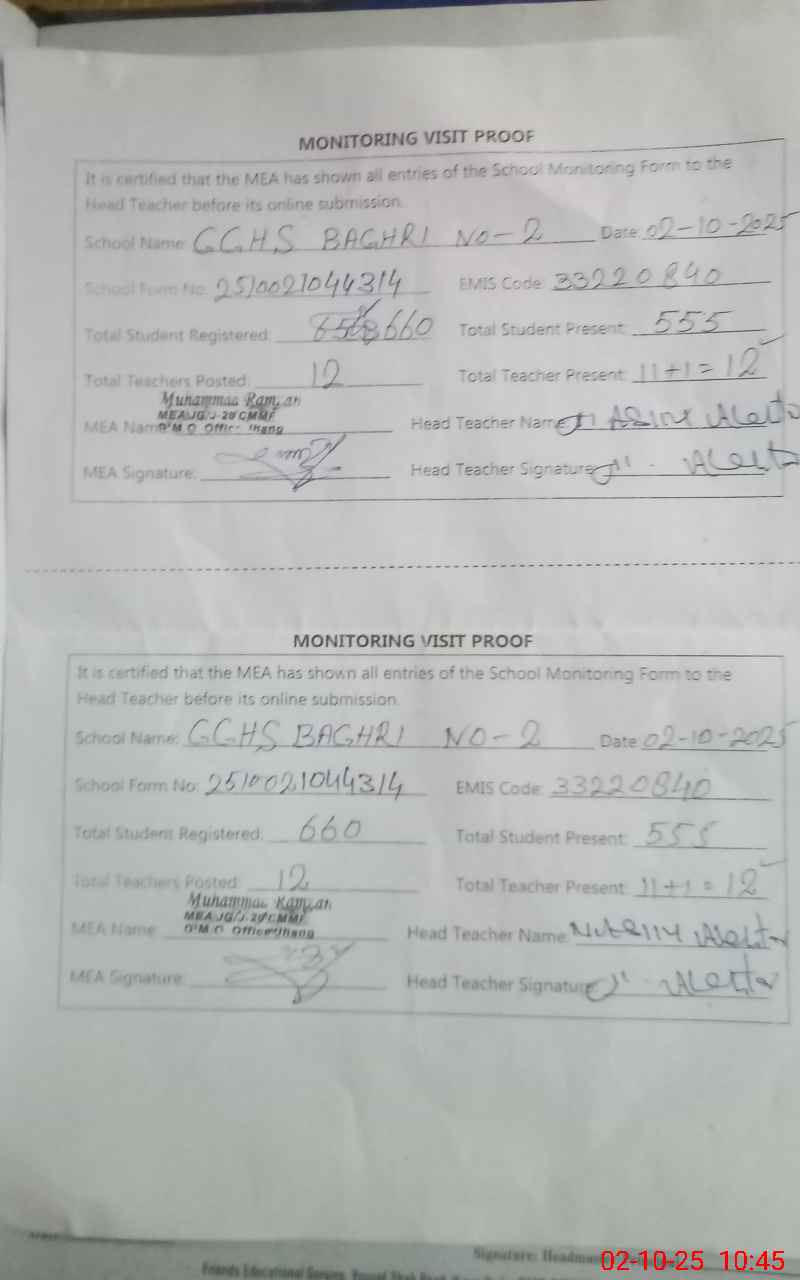 MONITORING VISIT PROOF
It is certified that the MEA has shown all entries of the School Monitoring Form to the
Head Teacher before its online submission.
School Name: GGHS BAGHRI NO-2 Date: 02-10-2025
School Form No: 2510021044314 EMIS Code: 33220840
Total Student Registered: 660 Total Student Present: 555
Total Teachers Posted: 12 Total Teacher Present: 11+1=12
Muhammad Ramzan
MEA JG/J-20 CMMF
MEA Name: D.M.O Office Jhang Head Teacher Name:
MEA Signature: Head Teacher Signature:
MONITORING VISIT PROOF
It is certified that the MEA has shown all entries of the School Monitoring Form to the
Head Teacher before its online submission.
School Name: GGHS BAGHRI NO-2 Date: 02-10-2025
School Form No: 2510021044314 EMIS Code: 33220840
Total Student Registered: 660 Total Student Present: 555
Total Teachers Posted: 12 Total Teacher Present: 11+1=12
Muhammad Ramzan
MEA JG/J-20 CMMF
MEA Name: D.M.O Office Jhang Head Teacher Name:
MEA Signature: Head Teacher Signature:
Signature:
02-10-25 10:45